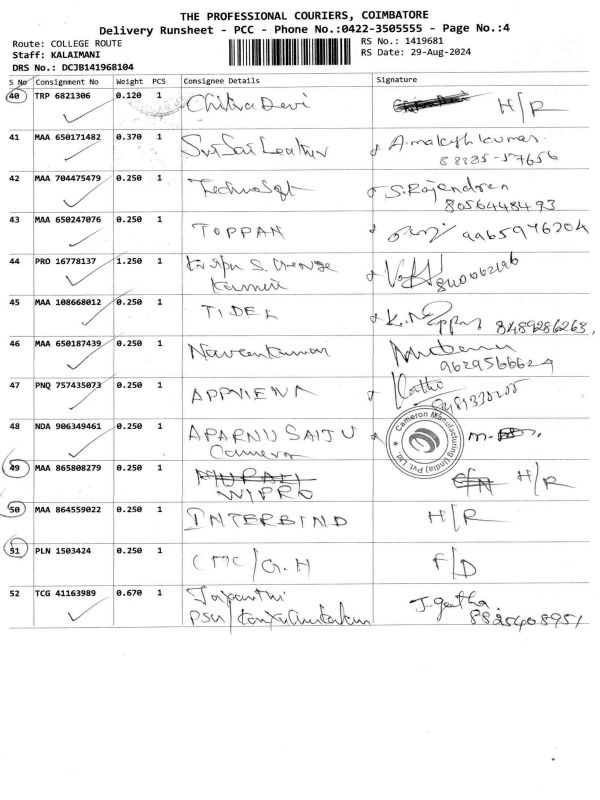 THE PROFESSIONAL COURIERS, COIMBATORE
Delivery Runsheet - PCC - Phone No.:0422-3505555 - Page No.:4
Route: COLLEGE ROUTE
RS No.: 1419681
Staff: KALAIMANI
RS Date: 29-Aug-2024
DRS No.: DCJB141968104
S No Consignment No Weight PCS Consignee Details Signature
40 TRP 6821306 0.120 1 Chitra Devi H/R
41 MAA 650171482 0.370 1 Sri Sai Leather
42 MAA 704475479 0.250 1 TechnoSoft S. Rajendren
8056448493
43 MAA 650247076 0.250 1 TOPPAN 9965976204
44 PRO 16778137 1.250 1
45 MAA 108668012 0.250 1 TIDEL 8489286263
46 MAA 650187439 0.250 1 Naveenkumar
47 PNQ 757435073 0.250 1 APPVIENA
48 NDA 906349461 0.250 1 APARNU SAIJU
Cameron
Cameron Manufacturing (India) Pvt. Ltd.
49 MAA 865808279 0.250 1 H/R
WIPRO
50 MAA 864559022 0.250 1 INTERBIND H/R
51 PLN 1503424 0.250 1 CMC/G.H F/D
52 TCG 41163989 0.670 1 Jayanthi J. Geetha
PSG 8825408951